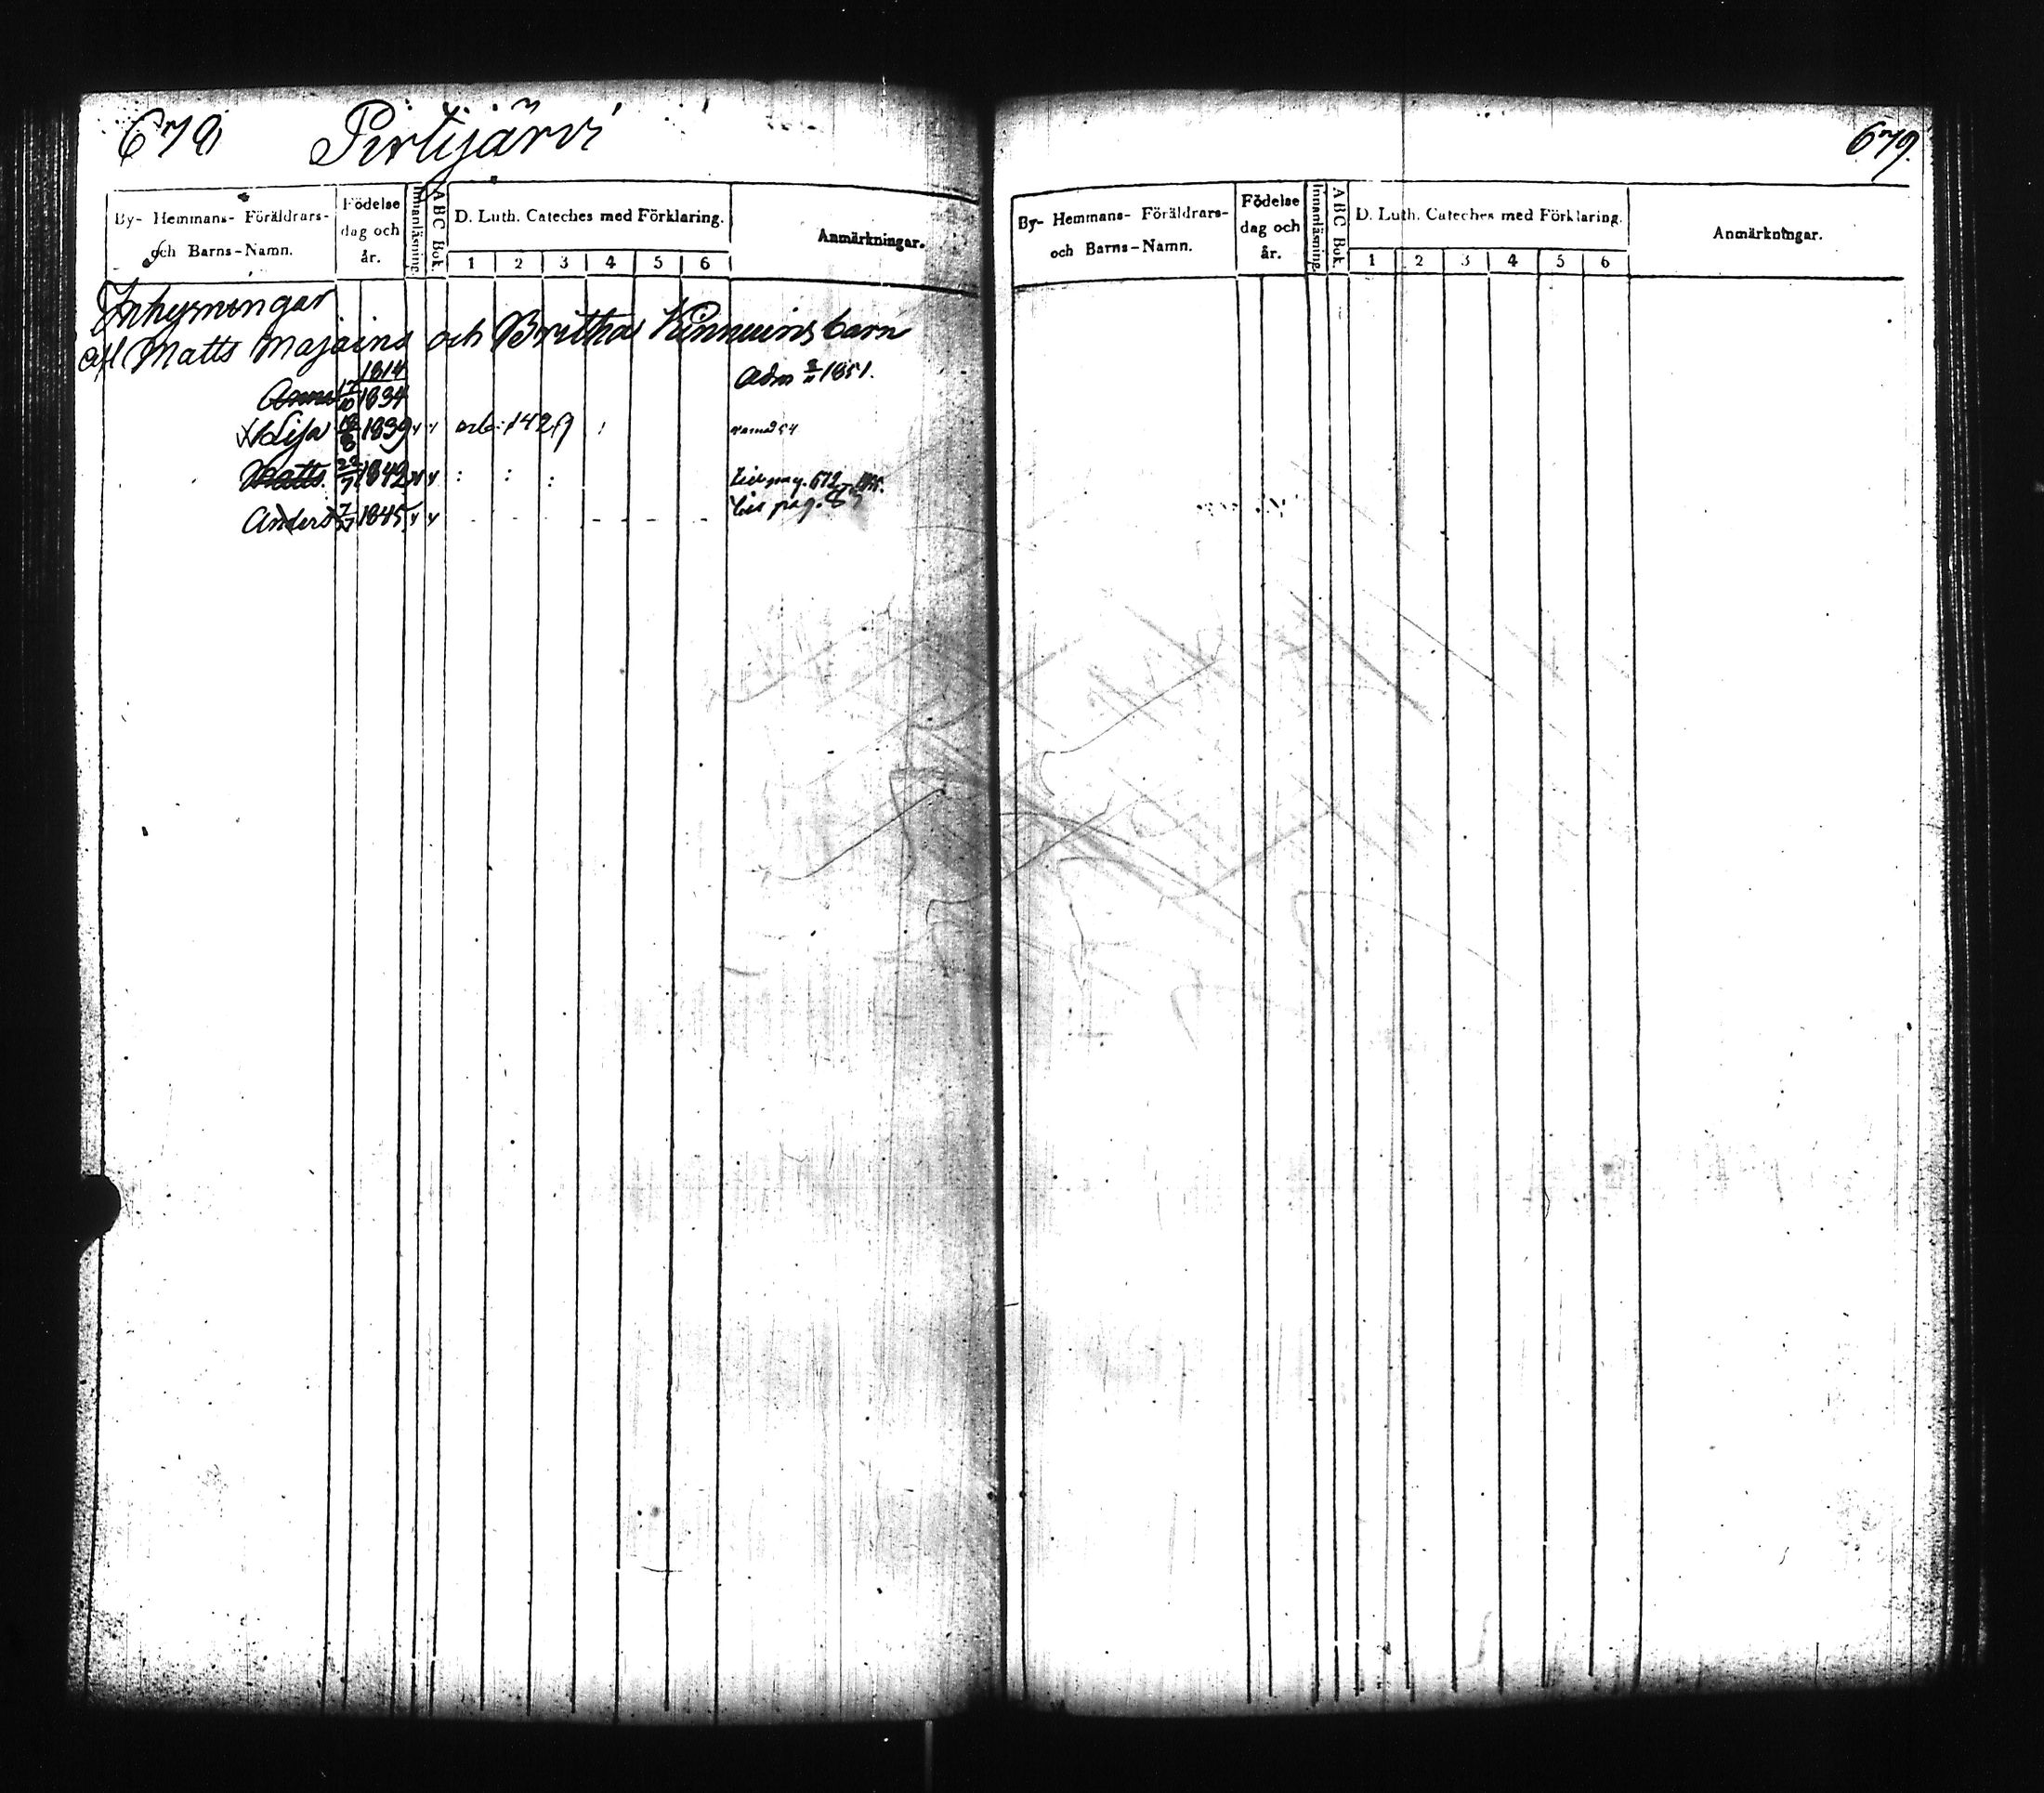 678 Pirtijärvi
By- Hemmans- Föräldrars-
och Barns-Namn.
Födelse
dag och
år.
Innanläsning.
ABC Bok.
D. Luth. Cateches med Förklaring.
1 2 3 4 5 6
Anmärkningar.
Inhysningar
afl Matts Majains och Britha Kinnuins barn
1814
Anna 17/10 1834 Adm 2/11 1851.
Lisa 18/8 1839
Matts 22/7 1842 pag. 672
Anders 1845 pag.
679.
By- Hemmans- Föräldrars-
och Barns-Namn.
Födelse
dag och
år.
Innanläsning.
ABC Bok.
D. Luth. Cateches med Förklaring.
1 2 3 4 5 6
Anmärkningar.